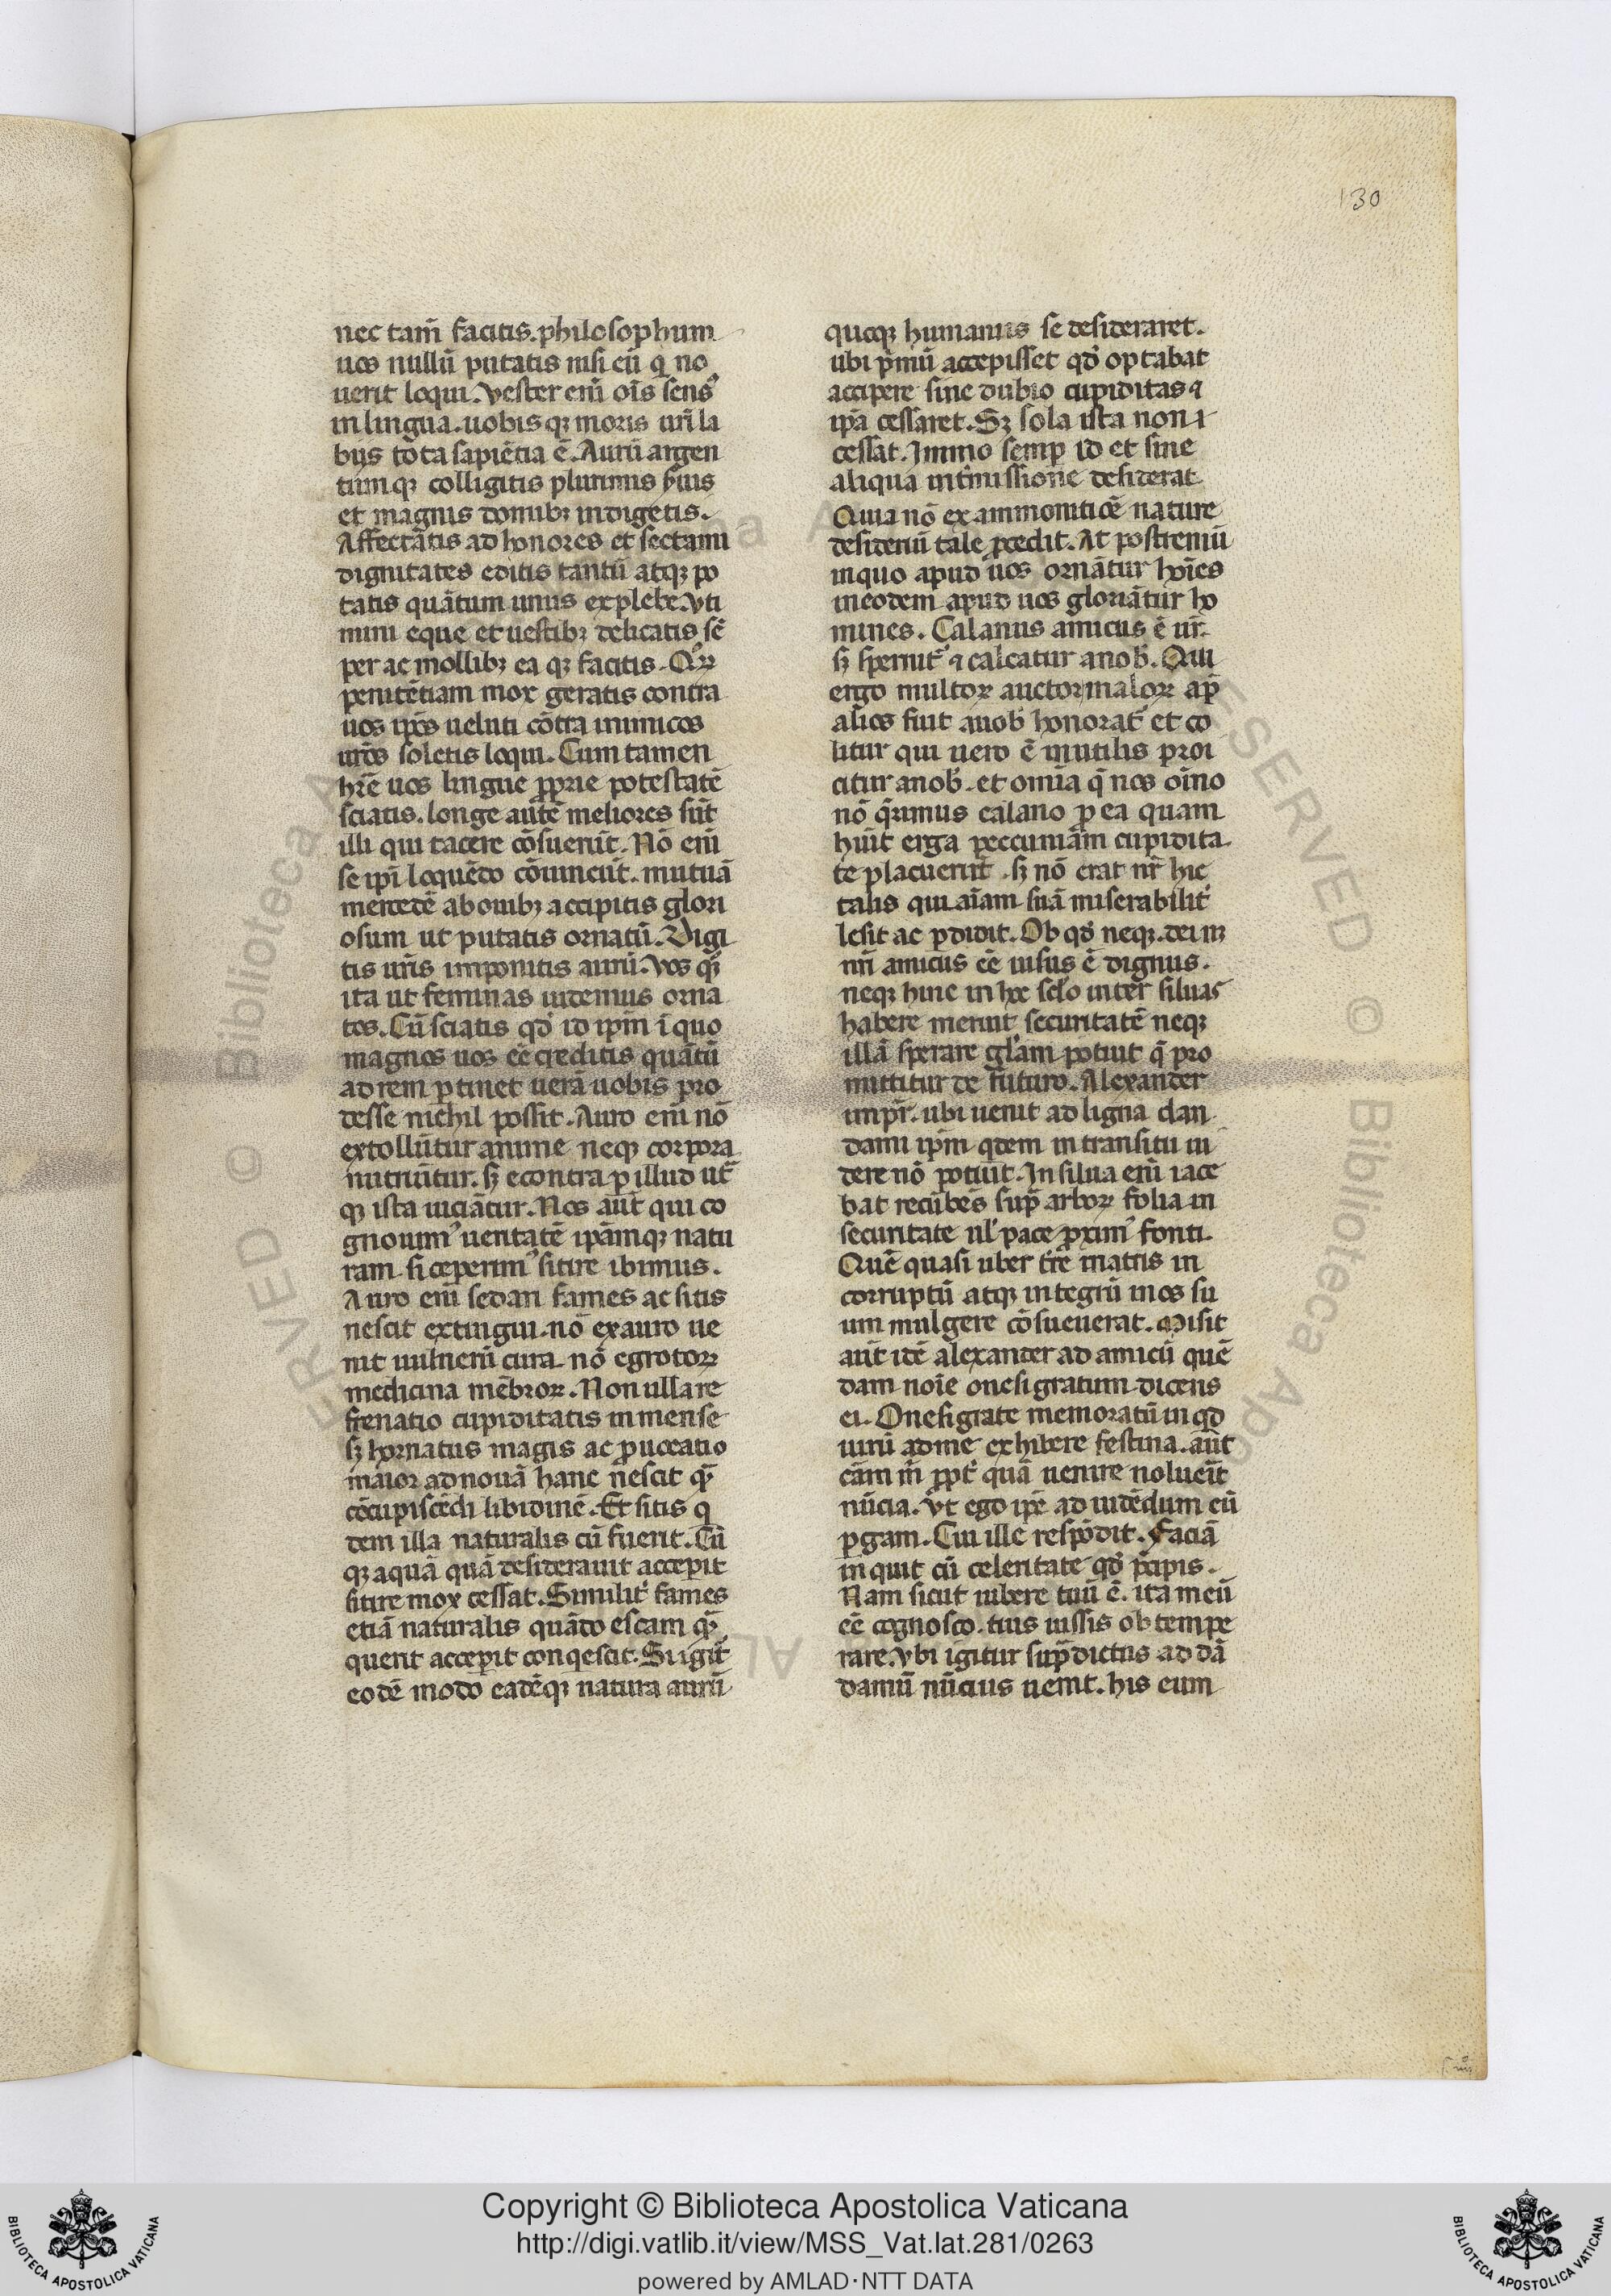 130
nec tam̄ facitis. philosophum
uos nullū putatis nisi eū q̇ no
uerit loqui. Vester enī oīs sensꝰ
in lingua. uobis qꝫ moris urī la
bijs tota sapiētia ē. Aurū argen
tumqꝫ colligitis plurimis s̄uis
et magnis domibꝫ indigetis.
Affectātis ad honores et sectami
dignitates editis tantū atqꝫ po
tatis quātum unus explebe. Vti
mini eque et uestibꝫ delicatis sē
per ac mollibꝫ ea qꝫ facitis. Quoꝝ
penitētiam mox geratis contra
uos ip̄os ueluti cōtra inimicos
ur̄os soletis loqui. Cum tamen
hr̄e uos lingue ꝓprie potestatē
sciatis. longe autē meliores sūt
illi qui tacere cōsuerūt. Nō enī
se ipī loquēdo cōuincūt. mutuā
mercedē ab ouibꝫ accipitis glori
osum ut putatis ornatū. Digi
tis uris imponitis aurū. Vos qꝫ
ita ut feminas uidemus orna
tos. Cū sciatis qđ id ip̄m ī quo
magnos uos eē creditis quātū
ad rem ꝑtinet uerā uobis pro
desse nichil possit. Auro enī nō
extollūtur anime neqꝫ corpora
nutriūtur. sꝫ econtra ꝑ illud utr̄
qꝫ ista uiciātur. Nos aūt qui co
gnouimꝰ ueritatē ipāmqꝫ natu
ram. si ceperimꝰ sitire ibimus.
Auro enī sedari fames ac sitis
nescit extingui. nō ex auro ue
nit uulnerū cura nō egrotoꝝ
medicina mēbroꝝ. Non ulla re
frenatio cupiditatis inmense
sꝫ hornatus magis ac ꝓuocatio
maior ad nouā hanc nescit qꝫ
cōcupiscēdi libidinē. Et sitis q
dem illa naturalis cū fuerit. Cū
qꝫ aquā quā desiderauit acceꝑit
sitire mox cessat. Similit̄ fames
etiā naturalis quādo escam qꝫ
querit acceꝑit conq̇escit. Si igit̄
eodē modo eadēqꝫ natura aurū
quoqꝫ humanus se desideraret.
ubi p̄mū accepisset qđ optabat
accipere sine dubio cupiditas ⁊
ipā cessaret. Sꝫ sola ista non ⁊
cessat. Immo semꝑ id et sine
aliqua int̄missione desiderat
Quia nō ex ammonitiōē nature
desideriū tale ꝓcedit. At postremū
in quo apud uos ornātur hoīes
in eodem apud uos gloriātur ho
mines. Calanus amicus ē ur̄.
sꝫ spernit̄ ⁊ calcatur a nob̄. Qui
ergo multoꝝ auctor maloꝝ ap̄
alios fuit a uob̄ honorat̄ et co
litur qui uero ē inutilis proi
citur a nob̄. et omīa q̄ nos oīno
nō q̄rimus calano ꝑ ea quam
huīt erga peccuniam cupidita
te placuerūt. sꝫ nō erat nr̄ hic
talis qui aīam suā miserabilit̄
lesit ac ꝑdidit. Ob qđ neqꝫ dei neqꝫ
nr̄i amicus eē uisus ē dignus.
neqꝫ hinc in hoc sclo inter siluas
habere meruit securitatē neqꝫ
illā sperare glām potuit q̄ pro
mittitur de futuro. Alexander
impr̄. ubi uenit ad ligna dan
dami ip̄m q̇dem in transitu ui
dere nō potuit. In silua enī iace
bat recūbēs suꝑ arboꝝ folia in
securitate ul̄ pace ꝓximꝰ fonti.
Quē quasi uber tr̄re matris in
corruptū atqꝫ integrū in os su
um mulgere cōsueuerat. Misit
aūt idē alexander ad amicū quē
dam noīe onesigratum dicens
ei. Onesigrate memoratū inqđ
uirū ad me exhibere festina. aūt
cām m̄ ꝓpt̄ quā uenire noluerit
nūcia. Vt ego ip̄e ad uidēdum eū
ꝑgam. Cui ille respōdit. Faciā
inquit cū celeritate qđ p̄cipis.
Nam sicut iubere tuū ē. ita meū
eē cognosco. tuis iussis obtempe
rare. Vbi igitur sup̄dictus ad dā
damū nūcius uenit. his eum
Copyright © Biblioteca Apostolica Vaticana
http://digi.vatlib.it/view/MSS_Vat.lat.281/0263
powered by AMLAD·NTT DATA
BIBLIOTECA APOSTOLICA VATICANA
BIBLIOTECA APOSTOLICA VATICANA